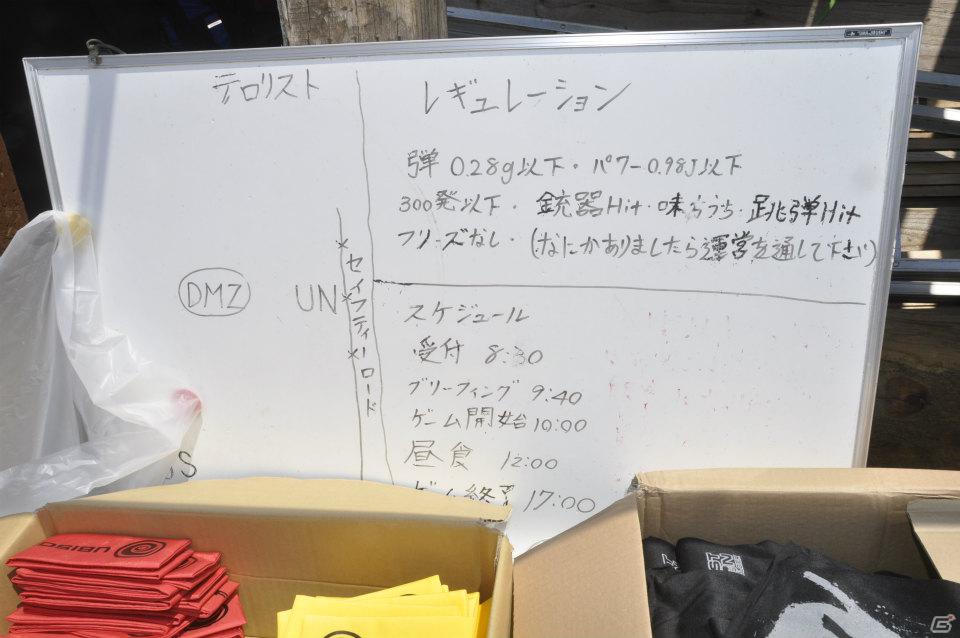 テロリスト
DMZ
UN
セイフティーロード
S
レギュレーション
弾 0.28g以下・パワー0.98J以下
300発以下・銃器Hit・味方うち・跳弾Hit
フリーズなし・(なにかありましたら運営を通して下さい)
スケジュール
受付 8:30
ブリーフィング 9:40
ゲーム開始 10:00
昼食 12:00
ゲーム終了 17:00
UBISO